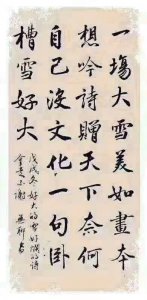 一塲大雪美如畫本
想吟詩贈天下奈何
自己沒文化一句卧
槽雪好大
戊戌冬好大的雪好的詩
會意不謝